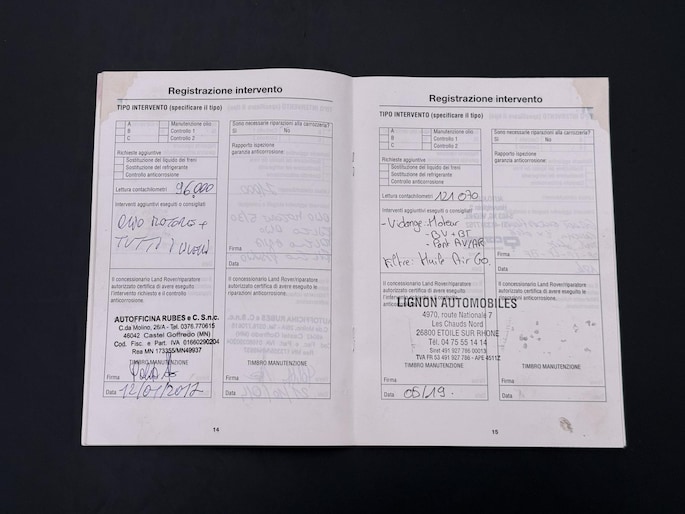 Registrazione intervento
TIPO INTERVENTO (specificare il tipo)
A Manutenzione olio
B Controllo 1
C Controllo 2
Richieste aggiuntive
Sostituzione del liquido dei freni
Sostituzione del refrigerante
Controllo anticorrosione
Lettura contachilometri 96.000
Interventi aggiuntivi eseguiti o consigliati
OLIO MOTORE +
TUTTI I
Il concessionario Land Rover/riparatore
autorizzato certifica di avere eseguito
l'intervento richiesto e il controllo
anticorrosione.
AUTOFFICINA RUBES e C. S.n.c.
C.da Molino, 26/A - Tel. 0376.770615
46042 Castel Goffredo (MN)
Cod. Fisc. e Part. IVA 01660290204
Rea MN 173355/MN49937
TIMBRO MANUTENZIONE
Firma
Data 12/01/2017
Sono necessarie riparazioni alla carrozzeria?
Sì No
Rapporto ispezione
garanzia anticorrosione
Firma
Data
Il concessionario Land Rover/riparatore
autorizzato certifica di avere eseguito le
riparazioni anticorrosione.
TIMBRO MANUTENZIONE
Firma
Data
14
Registrazione intervento
TIPO INTERVENTO (specificare il tipo)
A Manutenzione olio
B Controllo 1
C Controllo 2
Richieste aggiuntive
Sostituzione del liquido dei freni
Sostituzione del refrigerante
Controllo anticorrosione
Lettura contachilometri 121 070
Interventi aggiuntivi eseguiti o consigliati
- Vidange: Moteur
- BV + BT
- Pont AV/AR
Filtre: Huile Air Go.
Il concessionario Land Rover/riparatore
autorizzato certifica di avere eseguito
l'intervento richiesto e il controllo
anticorrosione.
LIGNON AUTOMOBILES
4970, route Nationale 7
Les Chauds Nord
26800 ETOILE SUR RHONE
Tél. 04 75 55 14 14
Siret 491 927 786 00013
TVA FR 53 491 927 786 - APE 4511Z
TIMBRO MANUTENZIONE
Firma
Data 05/19.
Sono necessarie riparazioni alla carrozzeria?
Sì No
Rapporto ispezione
garanzia anticorrosione
Firma
Data
Il concessionario Land Rover/riparatore
autorizzato certifica di avere eseguito le
riparazioni anticorrosione.
TIMBRO MANUTENZIONE
Firma
Data
15